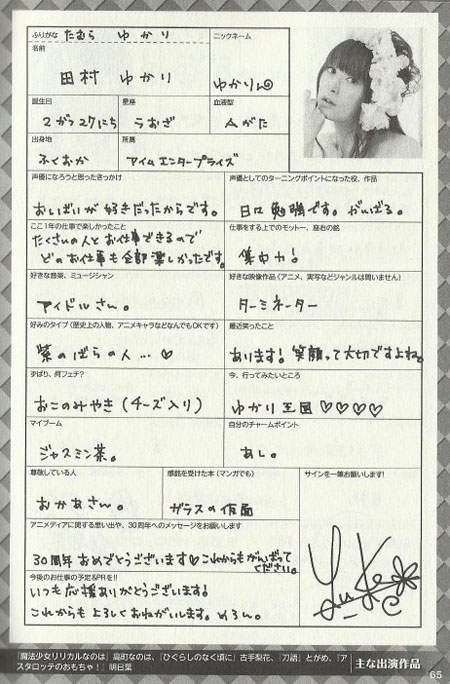 ふりがな たむら ゆかり
ニックネーム
名前
田村 ゆかり
ゆかりん
誕生日
星座
血液型
2がつ27にち
うおざ
Aがた
出身地
所属
ふくおか
アイムエンタープライズ
声優になろうと思ったきっかけ
声優としてのターニングポイントになった役、作品
おしばいが好きだったからです。
日々勉強です。がんばる。
ここ1年の仕事で楽しかったこと
仕事をする上でのモットー、座右の銘
たくさいの人とお仕事できるので
どのお仕事も全部楽しかったです。
集中力!
好きな音楽、ミュージシャン
好きな映像作品(アニメ、実写などジャンルは問いません)
アイドルさん。
ターミネーター
好みのタイプ(歴史上の人物、アニメキャラなどなんでもOKです)
最近笑ったこと
紫のばらの人…♡
あります!笑顔って大切ですよね。
ずばり、何フェチ?
今、行ってみたいところ
おこのみやき(チーズ入り)
ゆかり王国♡♡♡♡
マイブーム
自分のチャームポイント
ジャスミン茶。
あし。
尊敬している人
感銘を受けた本(マンガでも)
サインを一筆お願いします!
おかあさん。
ガラスの仮面
アニメディアに関する思い出や、30周年へのメッセージをお願いします
30周年おめでとうございます♡これからもがんばって
ください。
今後のお仕事の予定&PRを!!
いつも応援ありがとうございます!
これからもよろしくおねがいします。めろん。
『魔法少女リリカルなのは』高町なのは、『ひぐらしのなく頃に』古手梨花、『刀語』とがめ、『ア
スタロッテのおもちゃ!』明日葉
主な出演作品
65